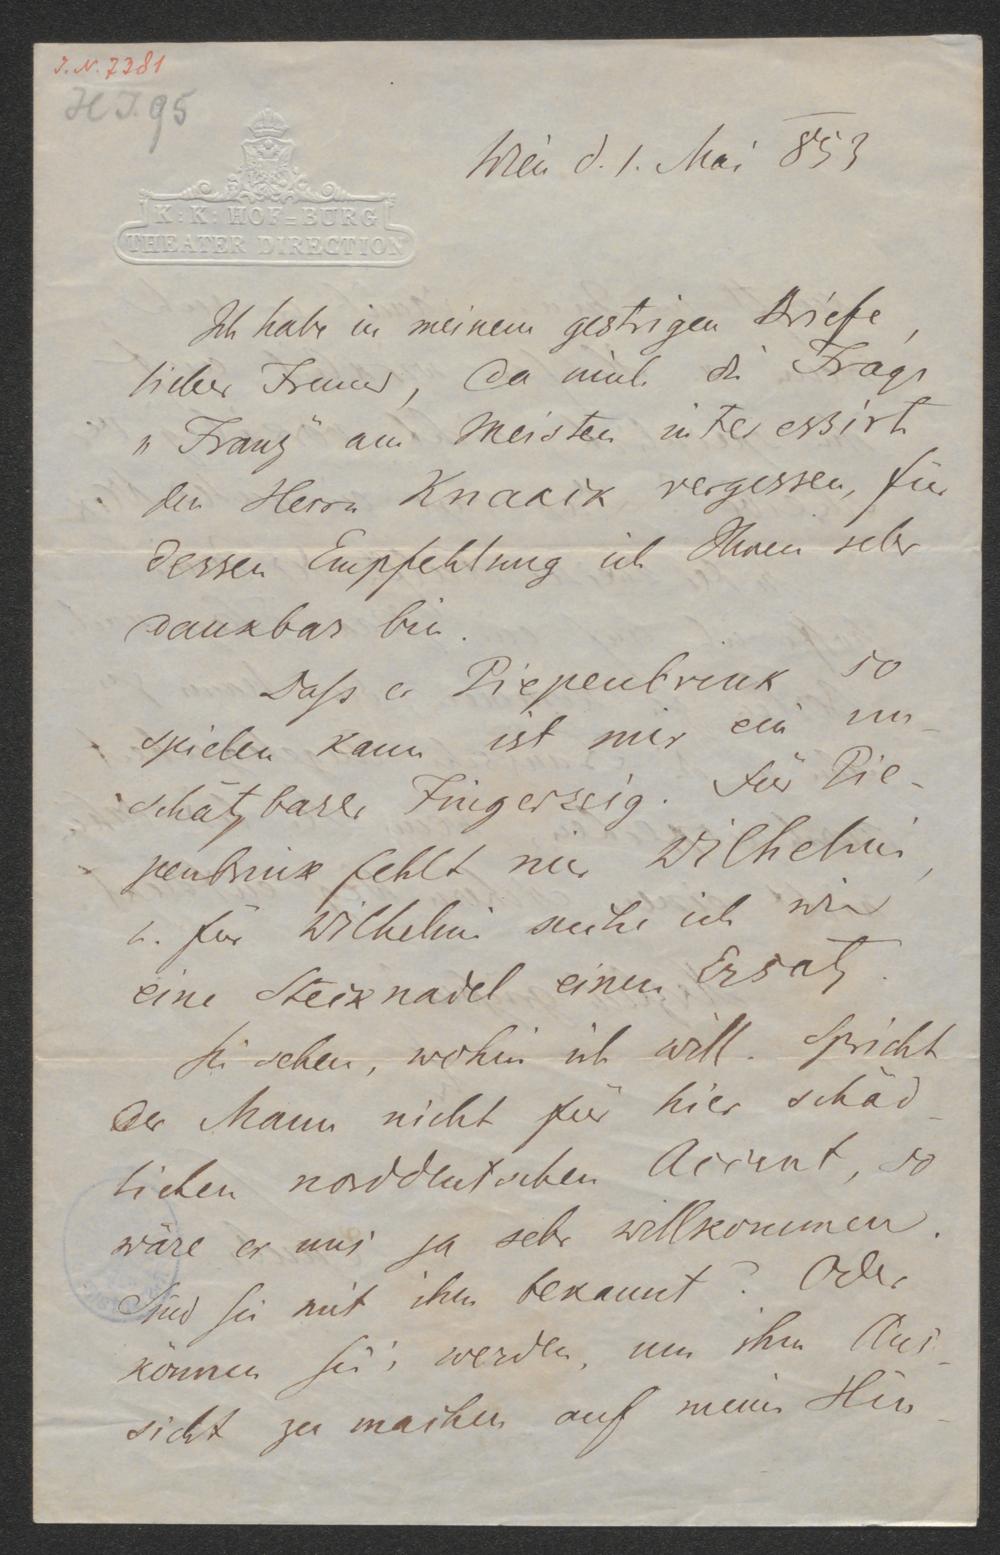 I.N. 7381
H I. 95
K: K: HOF-BURG
THEATER DIRECTION
Wien d. 1. Mai 853
Ich habe in meinem gestrigen Briefe,
lieber Freund, da mich die Frage
"Franz" am Meisten interessirt
den Herrn Knaack vergessen, für
dessen Empfehlung ich Ihnen sehr
dankbar bin.
Daß er Piepenbrink so
spielen kann ist mir ein un-
schätzbarer Fingerzeig. Für Pie-
penbrink fehlt mir Wilhelmi,
u. für Wilhelmi suche ich wie
eine Stecknadel einen Ersatz.
Sie sehen, wohin ich will. Spricht
der Mann nicht für hier schäd-
lichen norddeutschen Accent, so
wäre er uns ja sehr willkommen.
Sind Sie mit ihm bekannt? Oder
können Sie's werden, um ihm Aus-
sicht zu machen auf mein Hin-